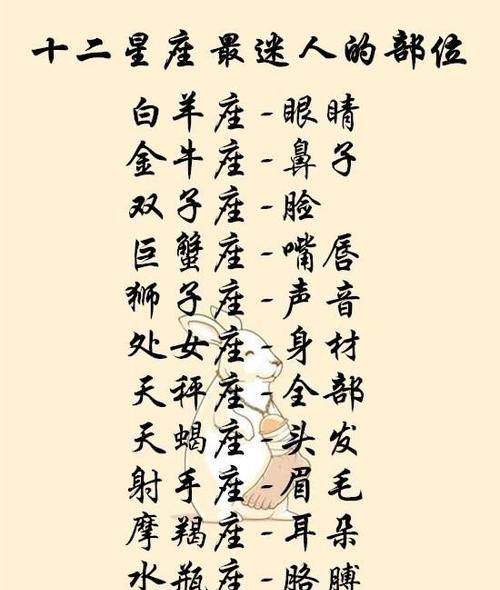 十二星座最迷人的部位
白羊座-眼睛
金牛座-鼻子
双子座-脸
巨蟹座-嘴唇
狮子座-声音
处女座-身材
天秤座-全部
天蝎座-头发
射手座-眉毛
摩羯座-耳朵
水瓶座-胳膊